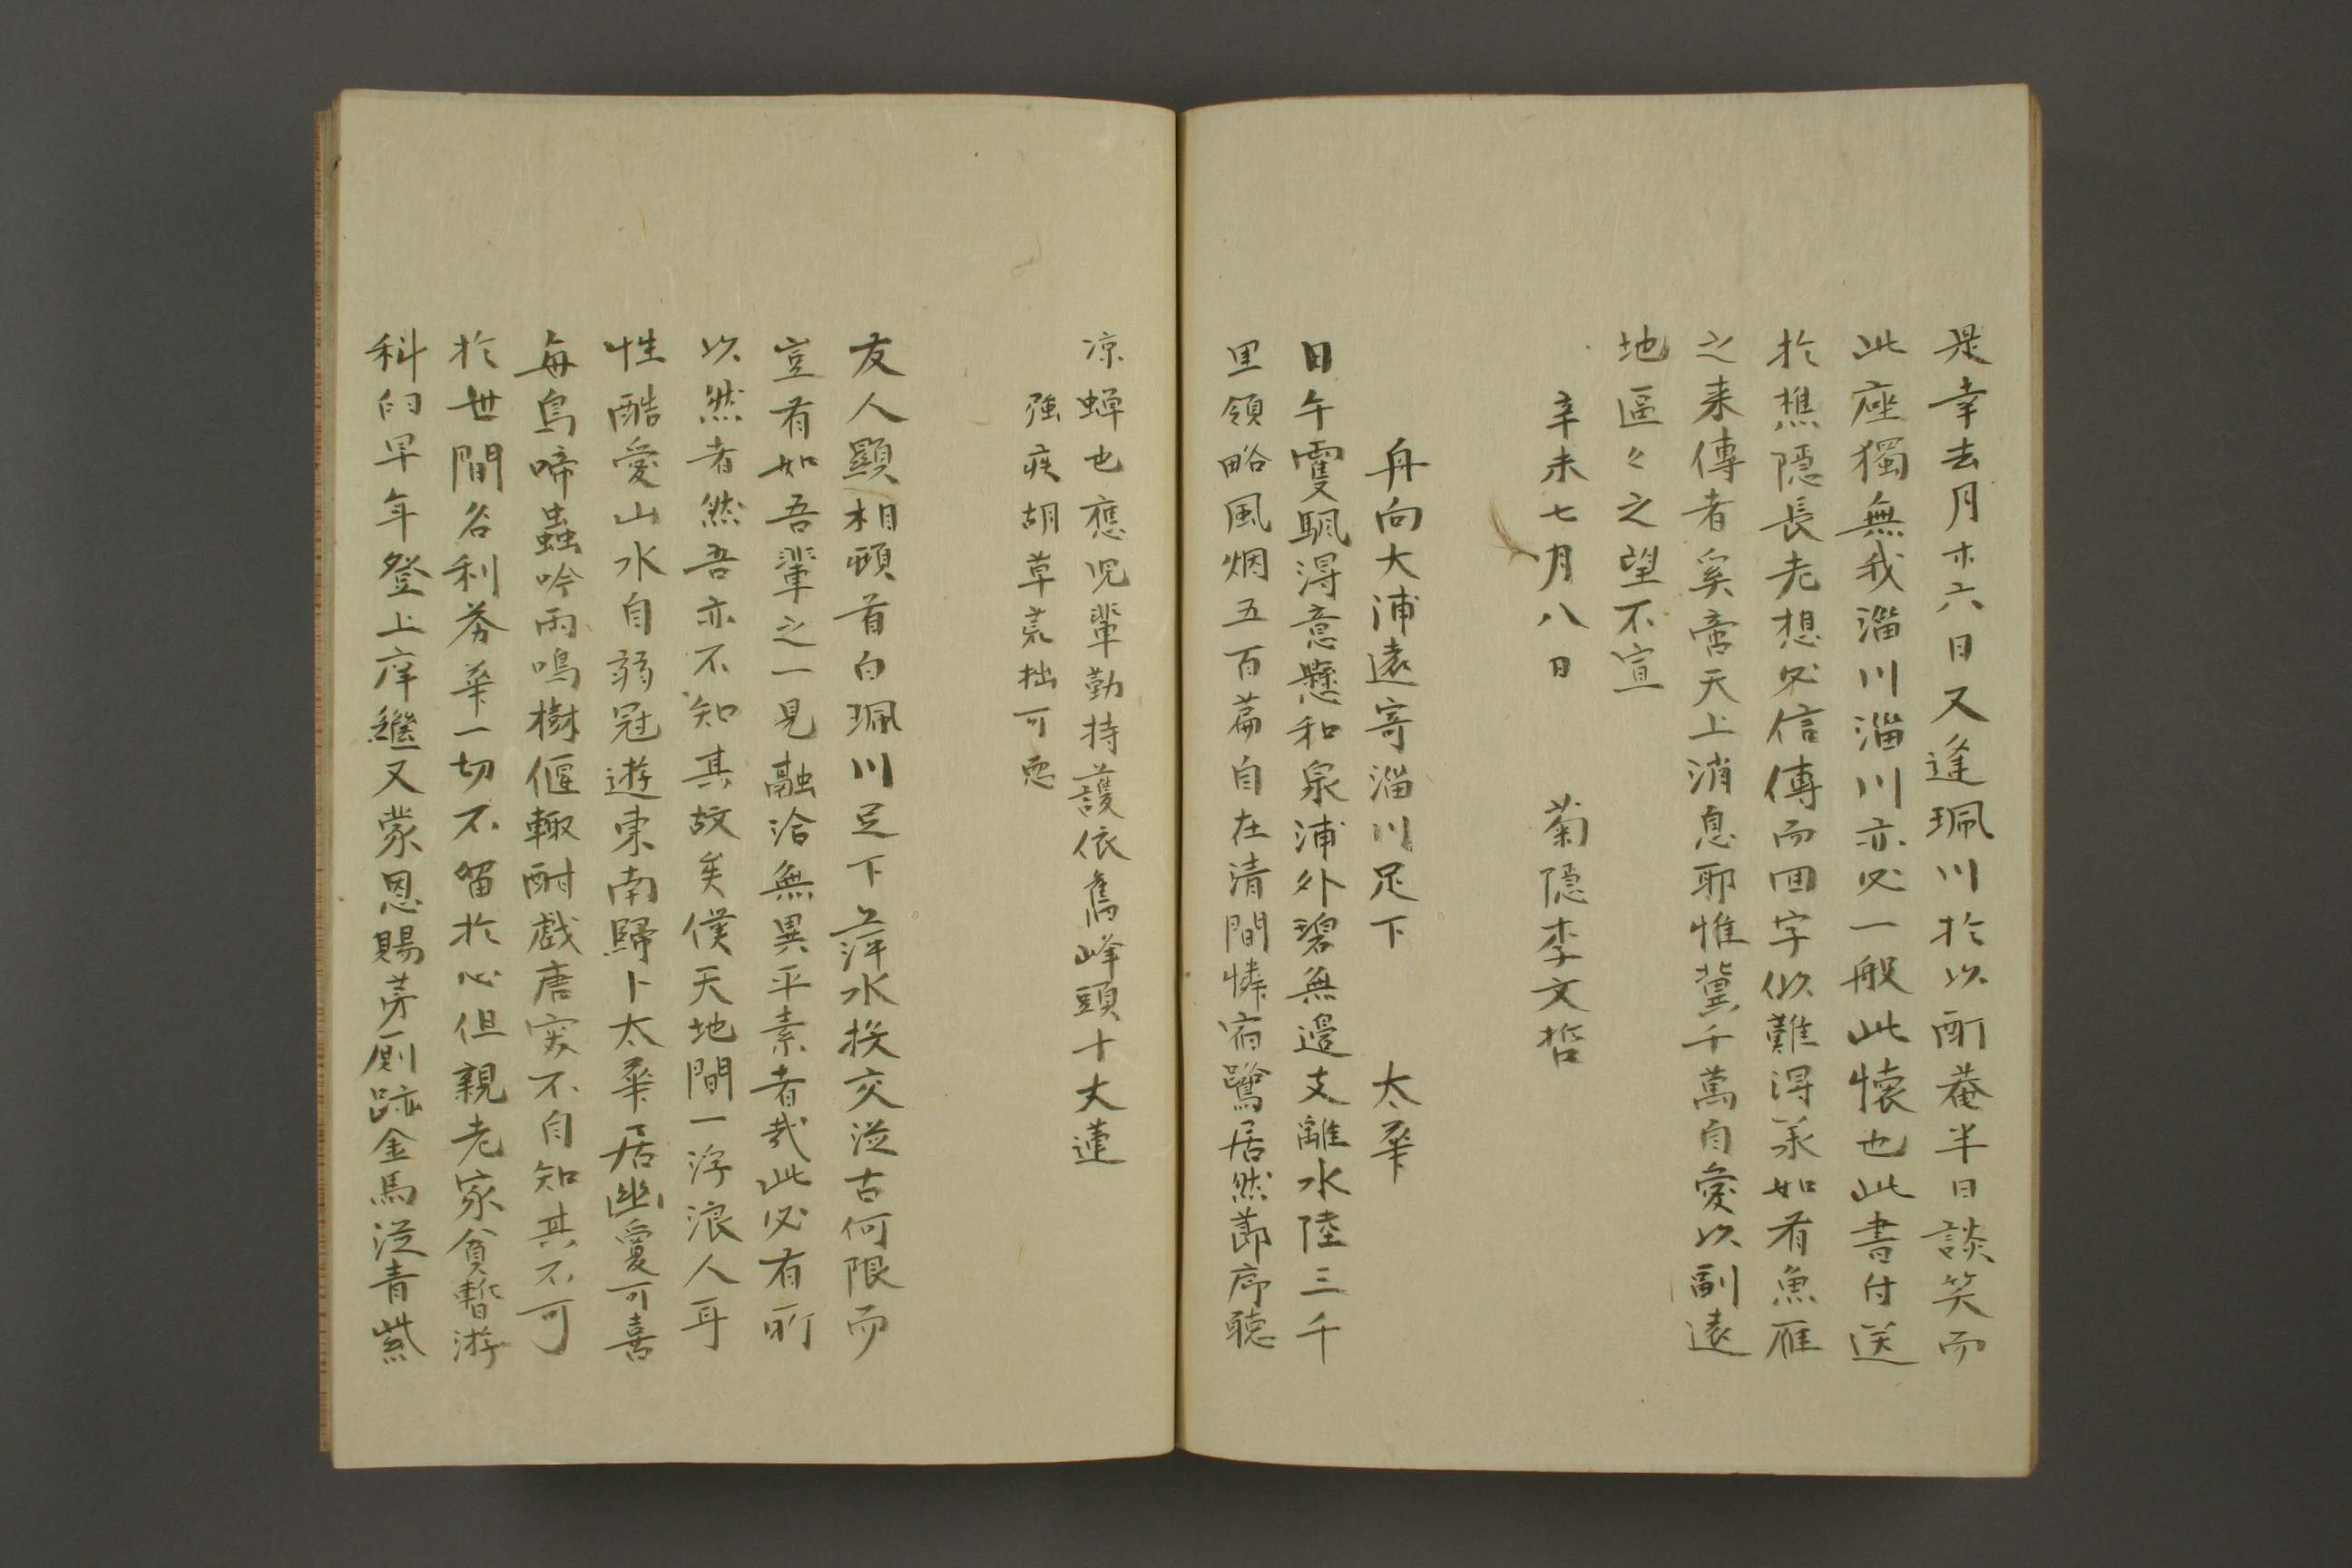 是幸去月卄六日又逢珮川於以酊菴半日談笑而
此座獨無我淄川淄川亦必一般此懷也此書付送
於樵隱長老想必信傳而回字似難得承如有魚雁
之来傳者奚啻天上消息耶惟冀千萬自愛以副遠
地區々之望不宣
辛未七月八日 菊隱李文哲
舟向大浦遠寄淄川足下 太華
日午雙颿得意懸和泉浦外碧無邊支離水陸三千
里領略風烟五百篇自在清間憐宿鷺居然郡府聴
凉蟬也應児輩勤持護依舊峰頭十丈蓮
強疾胡草荒拙可恧
友人顯相頓首白珮川足下萍水挨交從古何限而
豈有如吾輩之一見融洽無異平素者哉此必有所
以然者然吾亦不知其故矣僕天地間一浮浪人耳
性酷愛山水自弱冠遊東南歸卜太華居幽夐可喜
每鳥啼蟲吟雨鳴樹偃輙酣戱唐突不自知其不可
於世間名利芬華一切不留於心但親老家貧暫游
科臼早年登上庠繼又蒙恩賜芳厠跡金馬從青紫